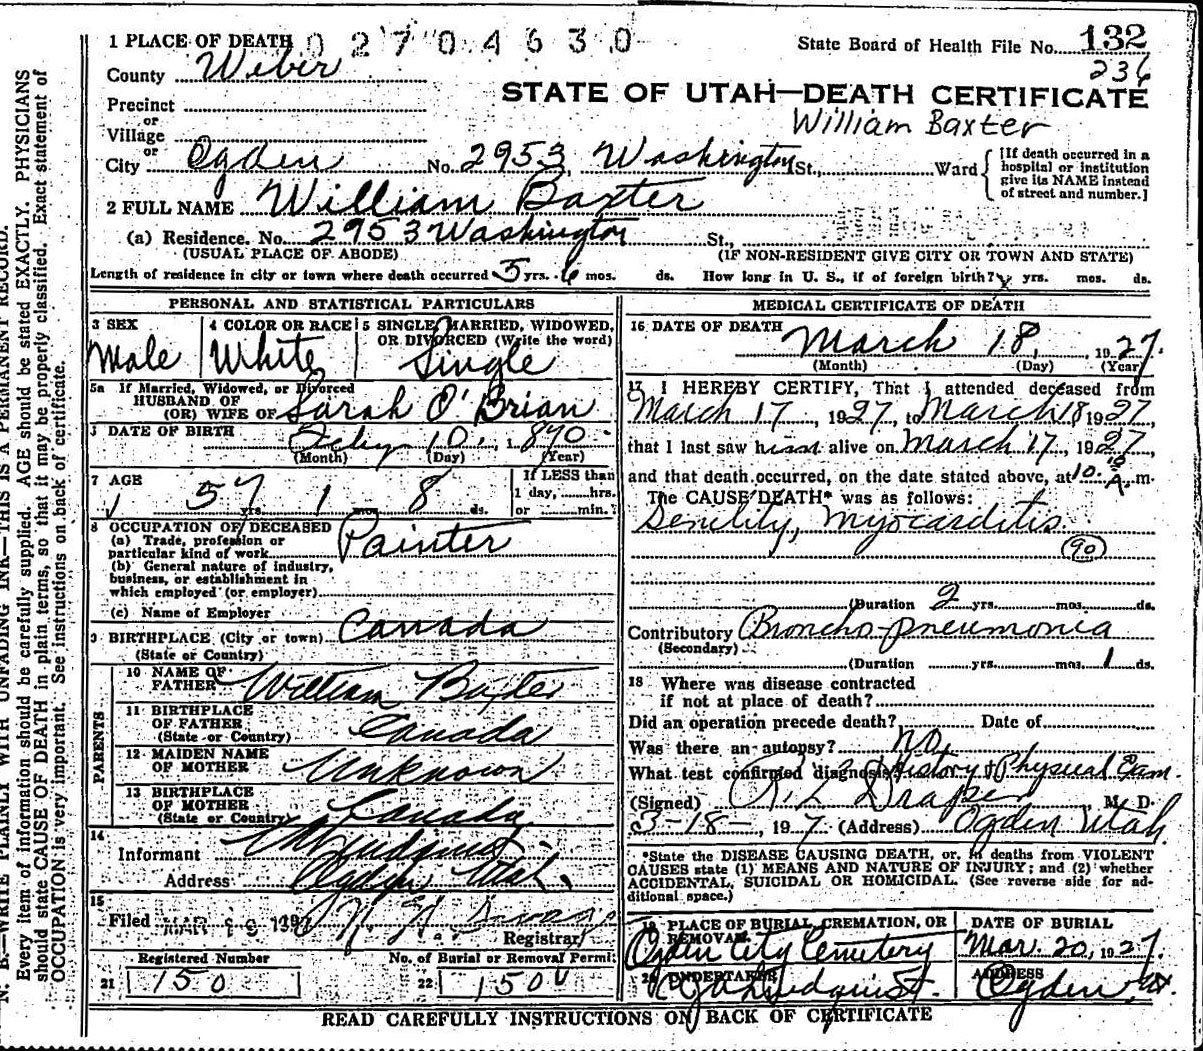 0 2 7 0 4 6 3 0
State Board of Health File No. 132
236
1 PLACE OF DEATH
County Weber
STATE OF UTAH—DEATH CERTIFICATE
William Baxter
Precinct
or
Village
or
City Ogden No. 2953 Washington St., Ward
[If death occurred in a hospital or institution give its NAME instead of street and number.]
2 FULL NAME William Baxter
(a) Residence. No. 2953 Washington St.,
(USUAL PLACE OF ABODE) (IF NON-RESIDENT GIVE CITY OR TOWN AND STATE)
Length of residence in city or town where death occurred 5 yrs. 6 mos. ds. How long in U. S., if of foreign birth? yrs. mos. ds.
PERSONAL AND STATISTICAL PARTICULARS
3 SEX
Male
4 COLOR OR RACE
White
5 SINGLE, MARRIED, WIDOWED,
OR DIVORCED (Write the word)
Single
5a If Married, Widowed, or Divorced
HUSBAND OF
(OR) WIFE OF Sarah O'Brian
DATE OF BIRTH Feby 10, 1870
(Month) (Day) (Year)
7 AGE
57 yrs. 1 mos. 8 ds.
If LESS than
1 day, hrs.
or min.?
8 OCCUPATION OF DECEASED
(a) Trade, profession or
particular kind of work Painter
(b) General nature of industry,
business, or establishment in
which employed (or employer)
(c) Name of Employer
9 BIRTHPLACE (City or town) Canada
(State or Country)
PARENTS
10 NAME OF
FATHER William Baxter
11 BIRTHPLACE
OF FATHER
(State or Country) Canada
12 MAIDEN NAME
OF MOTHER Unknown
13 BIRTHPLACE
OF MOTHER
(State or Country) Canada
14
Informant
Address Ogden Utah.
15
Filed MAR 1927
Registrar
Registered Number
21 150
No. of Burial or Removal Permit
22 150
MEDICAL CERTIFICATE OF DEATH
16 DATE OF DEATH
March 18, 1927.
(Month) (Day) (Year)
17 I HEREBY CERTIFY, That I attended deceased from
March 17, 1927, to March 18 1927
that I last saw him alive on March 17, 1927,
and that death occurred, on the date stated above, at 10 A. m.
The CAUSE DEATH* was as follows:
Senelity, Myocarditis
90
(Duration 2 yrs. mos. ds.
Contributory Broncho-pneumonia
(Secondary)
(Duration yrs. mos. 1 ds.
18 Where was disease contracted
if not at place of death?
Did an operation precede death? Date of
Was there an autopsy? no
What test confirmed diagnosis? History & Physical Exam.
(Signed) R. L. Draper, M. D.
3-18-, 1927 (Address) Ogden Utah.
*State the DISEASE CAUSING DEATH, or, in deaths from VIOLENT
CAUSES state (1) MEANS AND NATURE OF INJURY; and (2) whether
ACCIDENTAL, SUICIDAL OR HOMICIDAL. (See reverse side for ad-
ditional space.)
19 PLACE OF BURIAL, CREMATION, OR
REMOVAL
Ogden City Cemetery
DATE OF BURIAL
Mar. 20, 1927.
20 UNDERTAKER
ADDRESS
Ogden, Ut.
READ CAREFULLY INSTRUCTIONS ON BACK OF CERTIFICATE
N. B.—WRITE PLAINLY WITH UNFADING INK—THIS IS A PERMANENT RECORD.
Every item of information should be carefully supplied. AGE should be stated EXACTLY. PHYSICIANS
should state CAUSE OF DEATH in plain terms, so that it may be properly classified. Exact statement of
OCCUPATION is very important. See instructions on back of certificate.